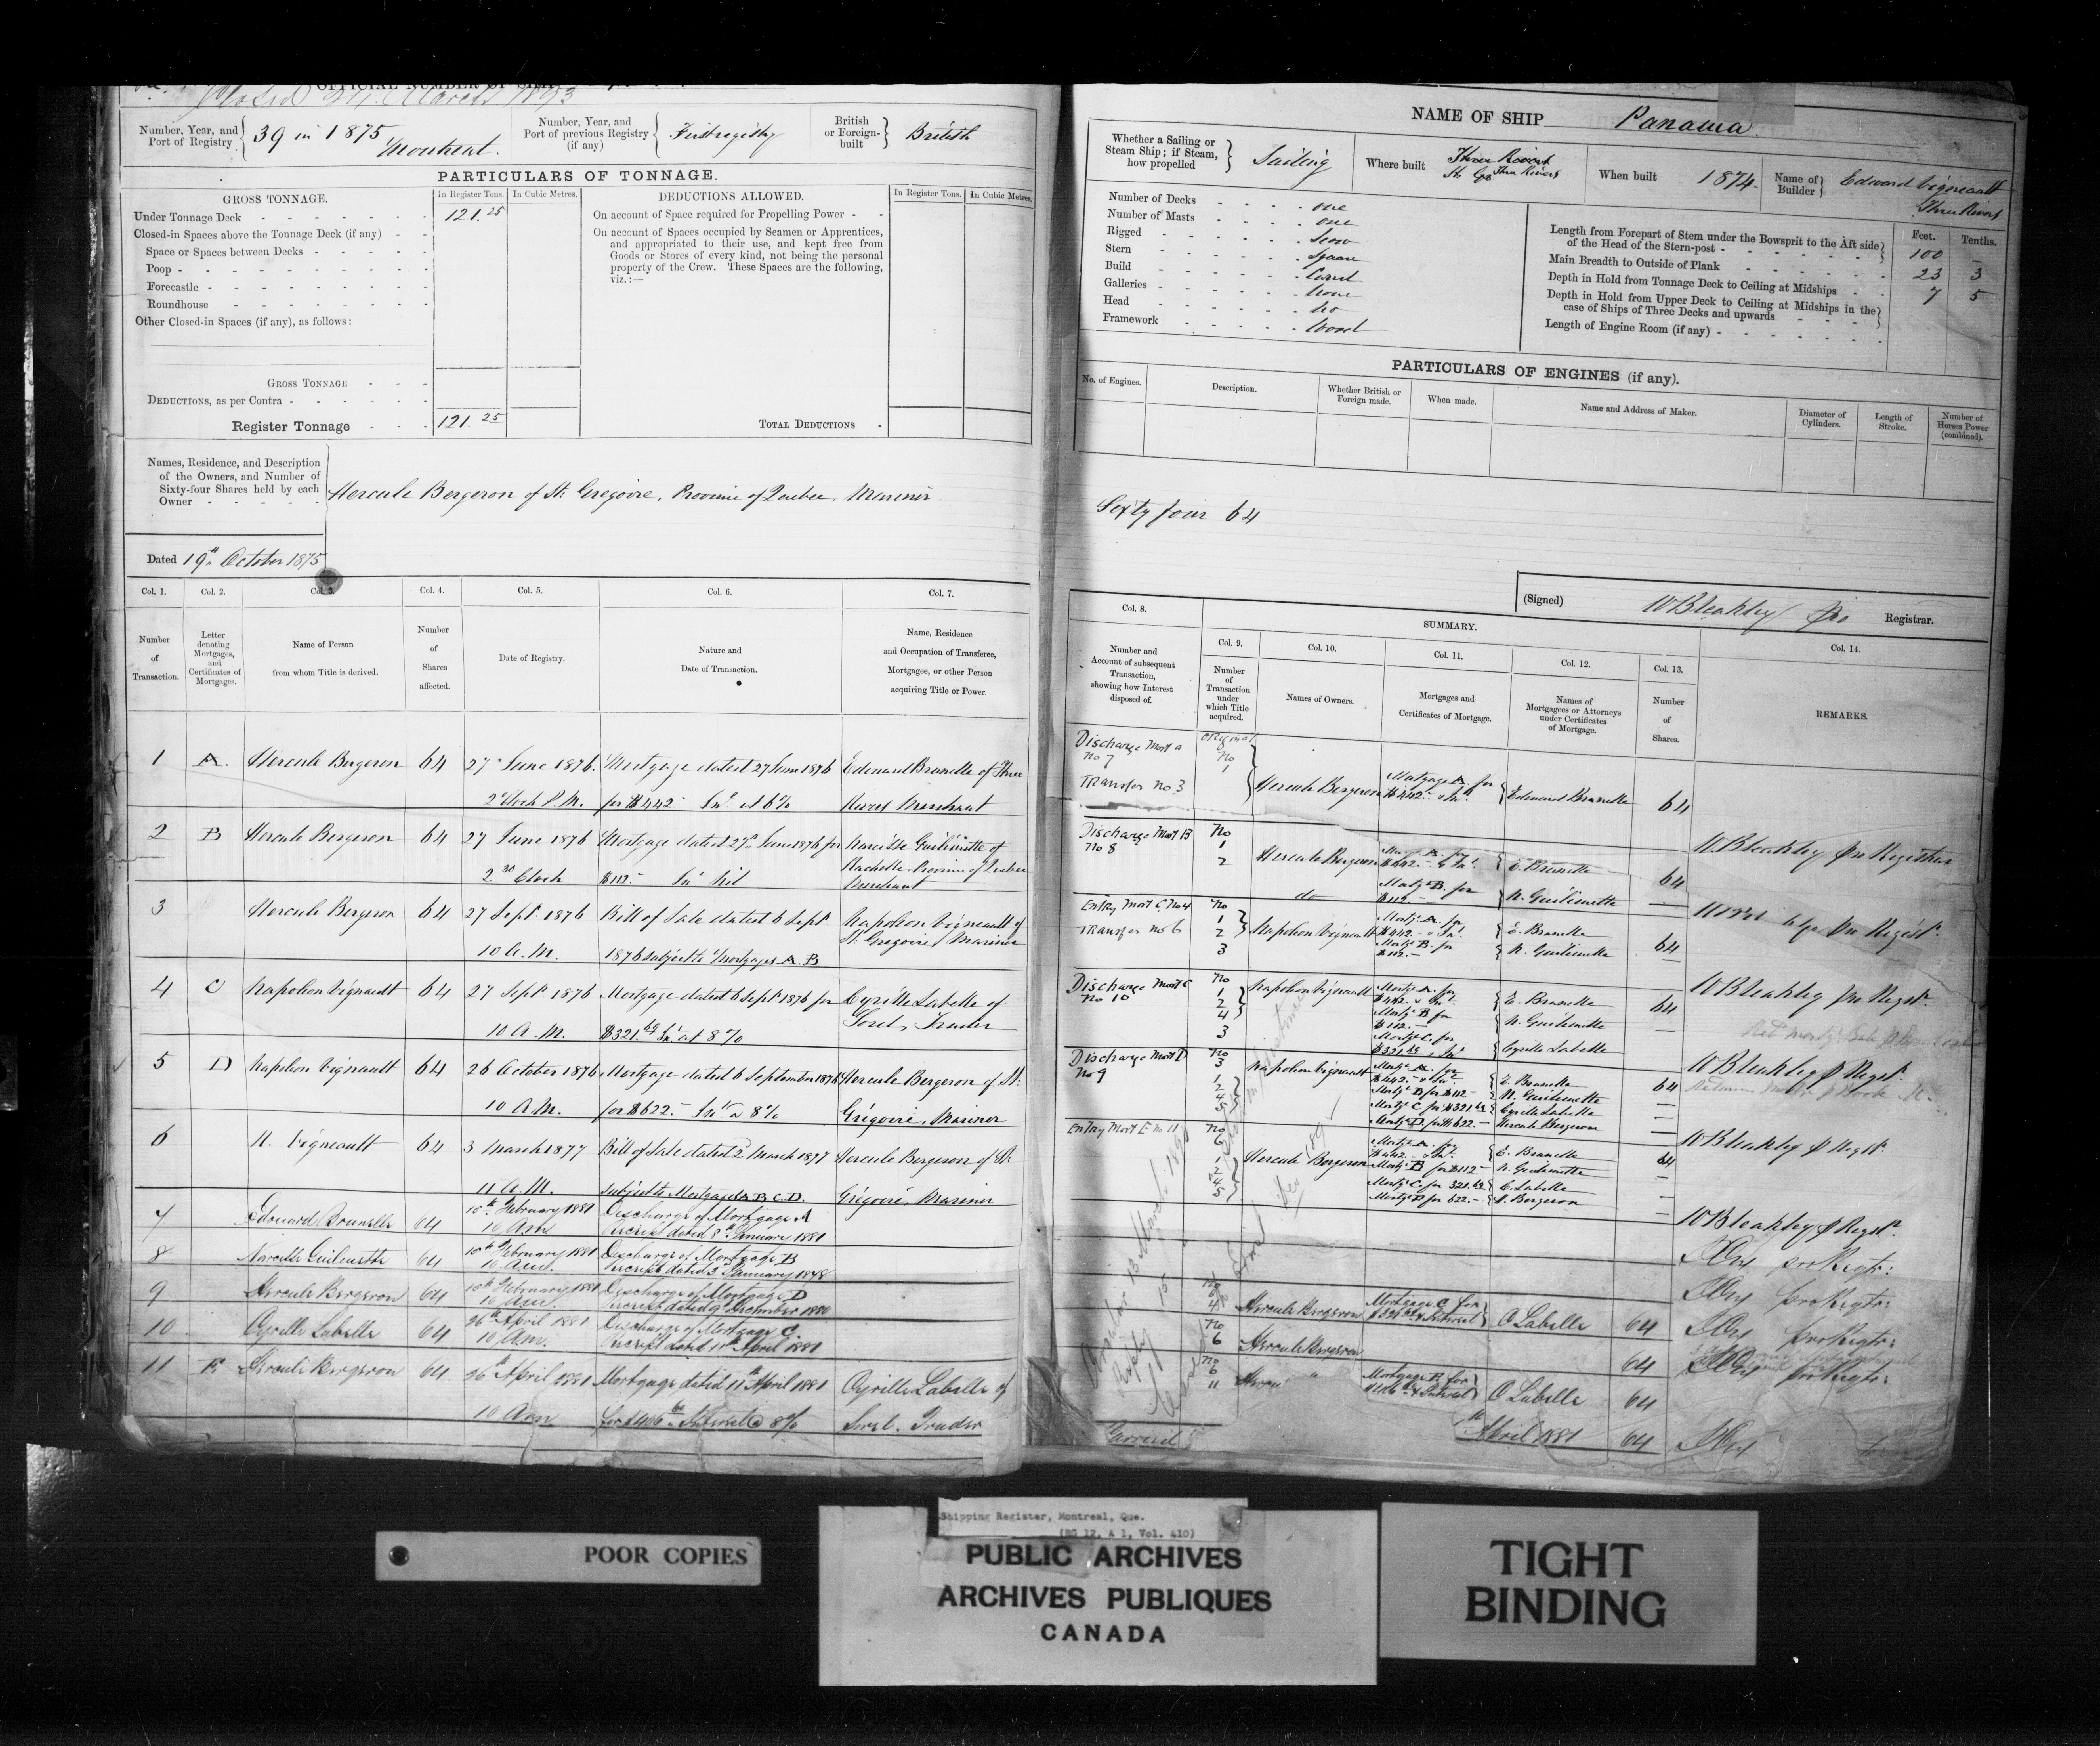 Closed 24 March 1893
OFFICIAL NUMBER OF SHIP
Number, Year, and Port of Registry 39 in 1875 Montreal
Number, Year, and Port of previous Registry (if any) First registry
British or Foreign-built British
PARTICULARS OF TONNAGE.
GROSS TONNAGE. In Register Tons. In Cubic Metres. DEDUCTIONS ALLOWED. In Register Tons. In Cubic Metres.
Under Tonnage Deck 121.25
Closed-in Spaces above the Tonnage Deck (if any)
Space or Spaces between Decks
Poop
Forecastle
Roundhouse
Other Closed-in Spaces (if any), as follows:
On account of Space required for Propelling Power
On account of Spaces occupied by Seamen or Apprentices,
and appropriated to their use, and kept free from
Goods or Stores of every kind, not being the personal
property of the Crew. These Spaces are the following,
viz.:—
GROSS TONNAGE
DEDUCTIONS, as per Contra
Register Tonnage 121.25
TOTAL DEDUCTIONS
Names, Residence, and Description
of the Owners, and Number of
Sixty-four Shares held by each
Owner
Hercule Bergeron of St. Gregoire, Province of Quebec, Mariner
Dated 19th October 1875
Col. 1. Col. 2. Col. 3. Col. 4. Col. 5. Col. 6. Col. 7.
Number of Transaction.
Letter denoting Mortgages, and Certificates of Mortgages.
Name of Person from whom Title is derived.
Number of Shares affected.
Date of Registry.
Nature and Date of Transaction.
Name, Residence and Occupation of Transferee, Mortgagee, or other Person acquiring Title or Power.
1 A. Hercule Bergeron 64 27 June 1876. Mortgage dated 27 June 1876 Edouard Brunelle of Three
2 oClock P.M. for $442 Int at 6% Rivers Merchant
2 B Hercule Bergeron 64 27 June 1876 Mortgage dated 27th June 1876 for Narcisse Guilmette of
2.30 Clock $112.- Int Nil Province of Quebec
Merchant
3 Hercule Bergeron 64 27 Sept. 1876 Bill of Sale dated 6 Sept. Napoleon Vigneault of
St. Gregoire Mariner
10 A.M. 1876 subject to Mortgages A. B
4 C Napoleon Vigneault 64 27 Sept. 1876 Mortgage dated 6 Sept. 1876 for Cyrille Labelle of
10 A.M. $321.69 Int. at 8% Sorel, Trader
5 D Napoleon Vigneault 64 26 October 1876 Mortgage dated 6 September 1876 Hercule Bergeron of St.
10 A.M. for $622.- Int @ 8% Grégoire, Mariner
6 N. Vigneault 64 3 March 1877 Bill of Sale dated 2 March 1877 Hercule Bergeron of St.
11 A.M. subject to Mortgages A B C D. Grégoire, Mariner
7 Edouard Brunelle 64 10th February 1881 Discharge of Mortgage A
10 Am Receipt dated 8th January 1881
8 Narcisse Guilmette 64 10th February 1881 Discharge of Mortgage B
10 Am. Receipt dated 3rd January 1878
9 Hercule Bergeron 64 10th February 1881 Discharge of Mortgage D
10 Am. Receipt dated 9th December 1880
10 Cyrille Labelle 64 26th April 1881 Discharge of Mortgage C.
10 Am. Receipt dated 11th April 1881
11 E Hercule Bergeron 64 26th April 1881 Mortgage dated 11th April 1881 Cyrille Labelle of
10 Am Interest @ 8% Sorel. Trader
NAME OF SHIP Panama
Whether a Sailing or Steam Ship; if Steam, how propelled Sailing
Where built Three Rivers
When built 1874.
Name of Builder Edward Vigneault
Three Rivers
Number of Decks one
Number of Masts one
Rigged Scow
Stern Square
Build Carvel
Galleries None
Head No
Framework Wood
Feet. Tenths.
Length from Forepart of Stem under the Bowsprit to the Aft side
of the Head of the Stern-post 100 –
Main Breadth to Outside of Plank 23 3
Depth in Hold from Tonnage Deck to Ceiling at Midships 7 5
Depth in Hold from Upper Deck to Ceiling at Midships in the
case of Ships of Three Decks and upwards
Length of Engine Room (if any)
PARTICULARS OF ENGINES (if any).
No. of Engines. Description. Whether British or Foreign made. When made. Name and Address of Maker. Diameter of Cylinders. Length of Stroke. Number of Horses Power (combined).
Sixty four 64
(Signed) W Bleakley pro Registrar.
Col. 8. SUMMARY. Col. 14.
Col. 9. Col. 10. Col. 11. Col. 12. Col. 13.
Number and Account of subsequent Transaction, showing how Interest disposed of.
Number of Transaction under which Title acquired.
Names of Owners.
Mortgages and Certificates of Mortgage.
Names of Mortgagees or Attorneys under Certificates of Mortgage.
Number of Shares.
REMARKS.
Discharge Mort A No 7
Transfer No 3
Original No 1 Hercule Bergeron Mortgage A for $442.- & Int. Edouard Brunelle 64
W. Bleakley pro Registrar
Discharge Mort B No 8
No 1 2 Hercule Bergeron Mortg. A. for $442.- & Int. E. Brunelle 64
do Mortg. B. for $112.- N. Guilmette
Entry Mort C. No 4
Transfer No 6
No 1 2 3 Napoleon Vigneault Mortg. A. for $442.- & Int. E. Brunelle 64
Mortg. B. for $112.- N. Guilmette
W Bleakley pro Regist.
Discharge Mort C No 10
No 1 2 4 3 Napoleon Vigneault Mortg. A. for $442. & Int. E. Brunelle 64
Mortg. B for $112.- N. Guilmette
Mortg. C. for $321.69 & Int. Cyrille Labelle
W Bleakley p Regist.
Discharge Mort D No 9
No 3 1 2 4 5 Napoleon Vigneault Mortg. A. for $442.- & Int. E. Brunelle 64
Mortg. B for $112- N. Guilmette
Mortg. C for $321.69 Cyrille Labelle
Mortg. D. for $622.- Hercule Bergeron
W Bleakley p Regist.
Entry Mort E no 11
No 6 1 2 4 5 Hercule Bergeron Mortg. A. for $442.- & Int. E. Brunelle 64
Mortg. B for $112.- N. Guilmette
Mortg. C for 321.69 C. Labelle
Mortg. D for 622.- H. Bergeron
W Bleakley p Regist.
No 6 4 Hercule Bergeron Mortgage C for & Interest C Labelle 64
No 6 Hercule Bergeron 64
No 6 11 Mortgage E for & Interest C Labelle 64
April 1881 64
POOR COPIES
Shipping Register, Montreal, Que.
(RG 12, A 1, Vol. 410)
PUBLIC ARCHIVES
ARCHIVES PUBLIQUES
CANADA
TIGHT
BINDING